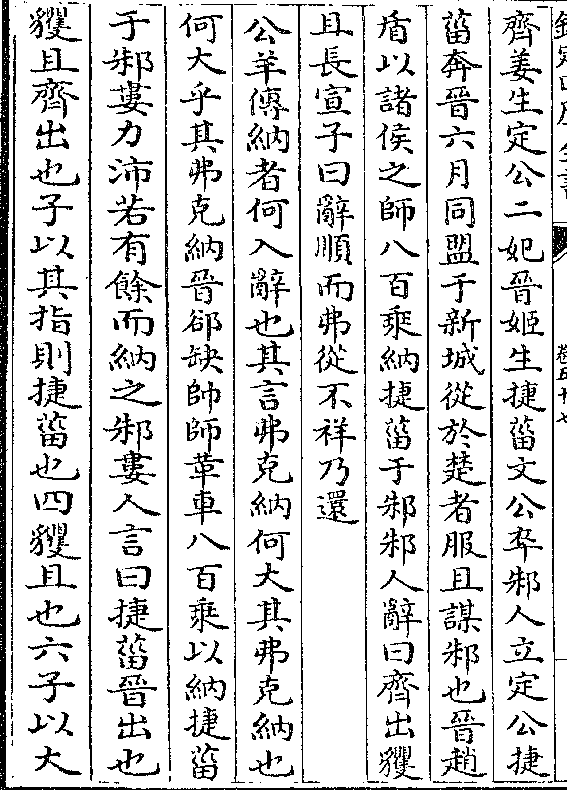 齊姜生定公二妃晉姬生捷菑文公卒邾人立定公捷
菑奔晉六月同盟于新城從於楚者服且謀邾也晉趙
盾以諸侯之師八百乘納捷菑于邾邾人辭曰齊出貜
且長宣子曰辭順而弗從不祥乃還
公羊傳納者何入辭也其言弗克納何大其弗克納也
何大乎其弗克納晉郤缺帥師革車八百乘以納捷菑
于邾婁力沛若有餘而納之邾婁人言曰捷菑晉出也
貜且齊出也子以其指則捷菑也四貜且也六子以大